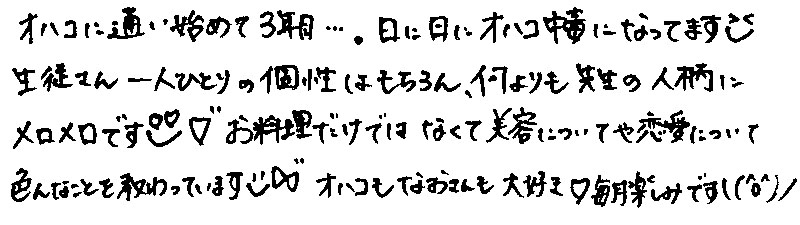 オハコに通い始めて3年目…。日に日にオハコ中毒になってます
生徒さん一人ひとりの個性はもちろん、何よりも先生の人柄に
メロメロです♡お料理だけではなくて美容についてや恋愛について
色んなことを教わっています♡オハコもなおさんも大好き♡毎月楽しみです\(^o^)/